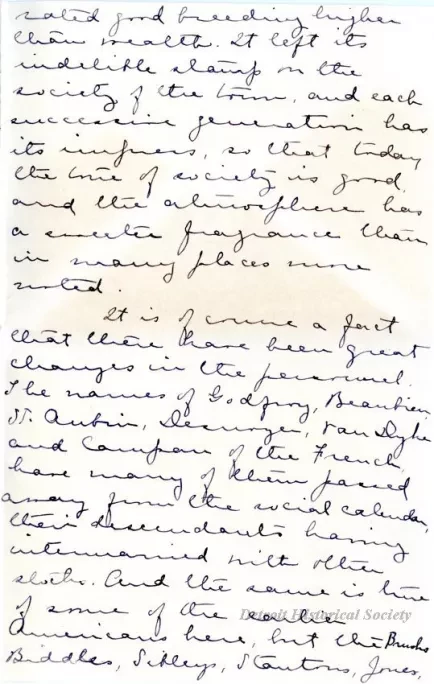 rated good breeding higher
than wealth. It left its
indelible stamp on the
society of the town, and each
successive generation has
its impress, so that today
the tone of society is good,
and the atmosphere has
a sweeter fragrance than
in many places more
noted.
It is of course a fact
that there have been great
changes in the personnel.
The names of Godfroy, Beaubien
St. Aubin, Desnoyer, Van Dyke
and Campau of the French,
have many of them passed
away from the social calendar,
their descendants having
intermarried with other
stocks. And the same is true
of some of the earlier
Americans here, but the Brushs
Biddles, Sibleys, Stantons, Jones,
Detroit Historical Society